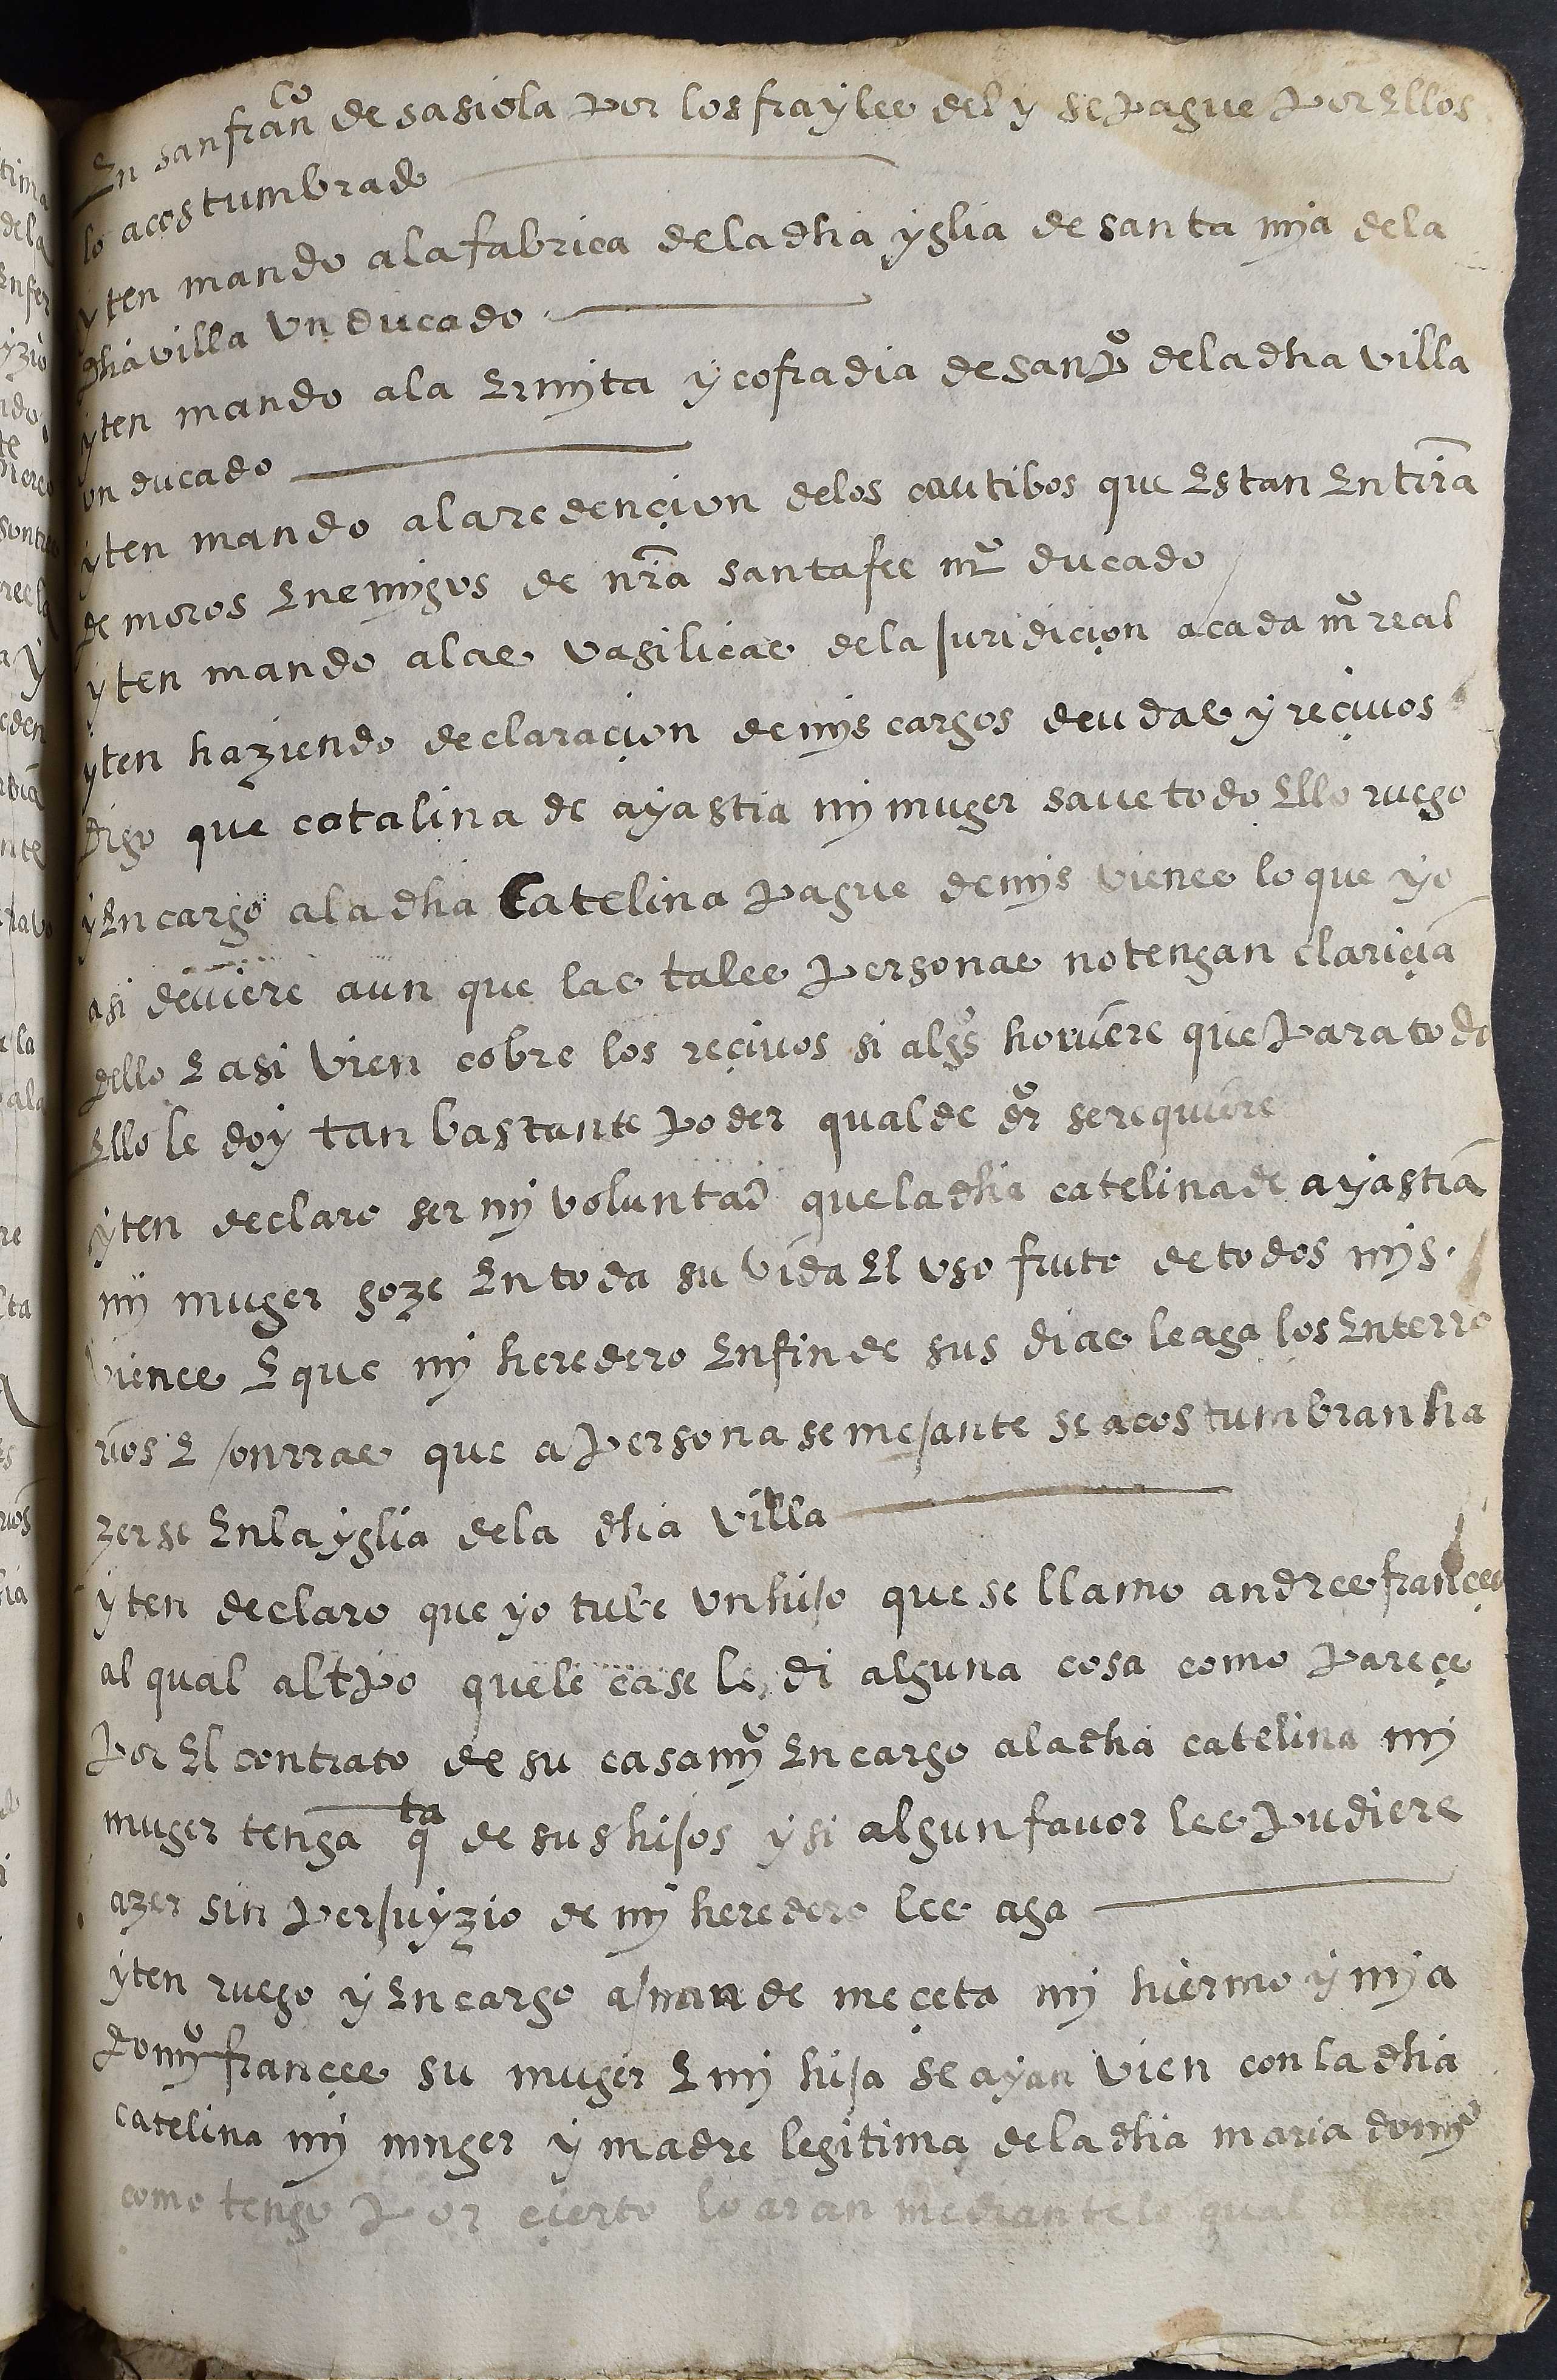 En sanfran^co de sasiola por los frayles del y se pague por ellos
lo acostumbrado
yten mando ala fabrica dela dha yglia de santa mja dela
dha villa un ducado
yten mando ala ermjta y cofradia de san p^o dela dha villa
un ducado
yten mando ala redençion delos cautibos que estan en trra
de moros enemjgos de nra santa fee m^o ducado
yten mando alas vasilicas dela juridiçion a cada m^o real
yten haziendo declaraçion de mjs cargos deudas y reçivos
digo que catalina de ayastia mj muger save todo ello ruego
y encargo ala dha Catelina pague de mjs vienes lo que yo
asi deviere aun que las tales personas no tengan clariçia
dello e asi vien cobre los reçivos si alg^s houiere que para todo
ello le doy tan bastante poder qual de dr^o se requiere
yten declaro ser mj voluntad que la dha catelina de ayastia
mj muger goze en toda su vida el uso fruto de todos mjs
vienes e que mj heredero en fin de sus dias le aga los enterro
rios e onrras que a persona semejante se acostumbran ha
zerse en la yglia dela dha villa
yten declaro que yo tube un hijo que se llamo andres françes
al qual al tpo que le case le di alguna cosa como pareçe
por el contrato de su casamj^o encargo ala dha catelina mj
muger tenga q^ta de sus hijos y si algun favor les pudiere
azer sin perjuyzio de mj heredero les aga
yten ruego y encargo a juan de meçeta mj hiermo y mja
domj^o françes su muger e mj hija se ayan vien con la dha
catelina mj muger y madre legitima dela dha maria domj^o
como tengo por çierto lo aran mediante lo qual